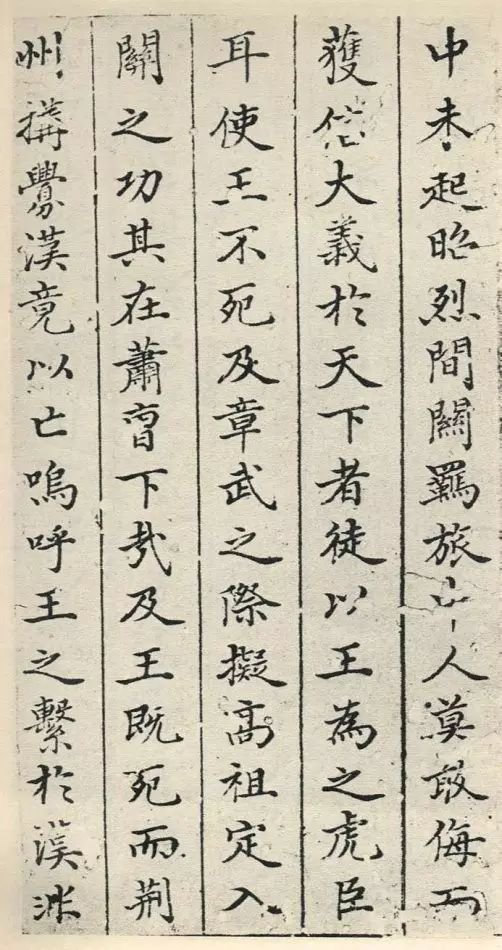 中未起昭烈間關羇旅中人莫敢侮而
獲信大義於天下者徒以王為之虎臣
耳使王不死及章武之際擬高祖定入
關之功其在蕭曺下㢤及王既死而荆
州搆釁漢竟以亡嗚呼王之繫於漢非